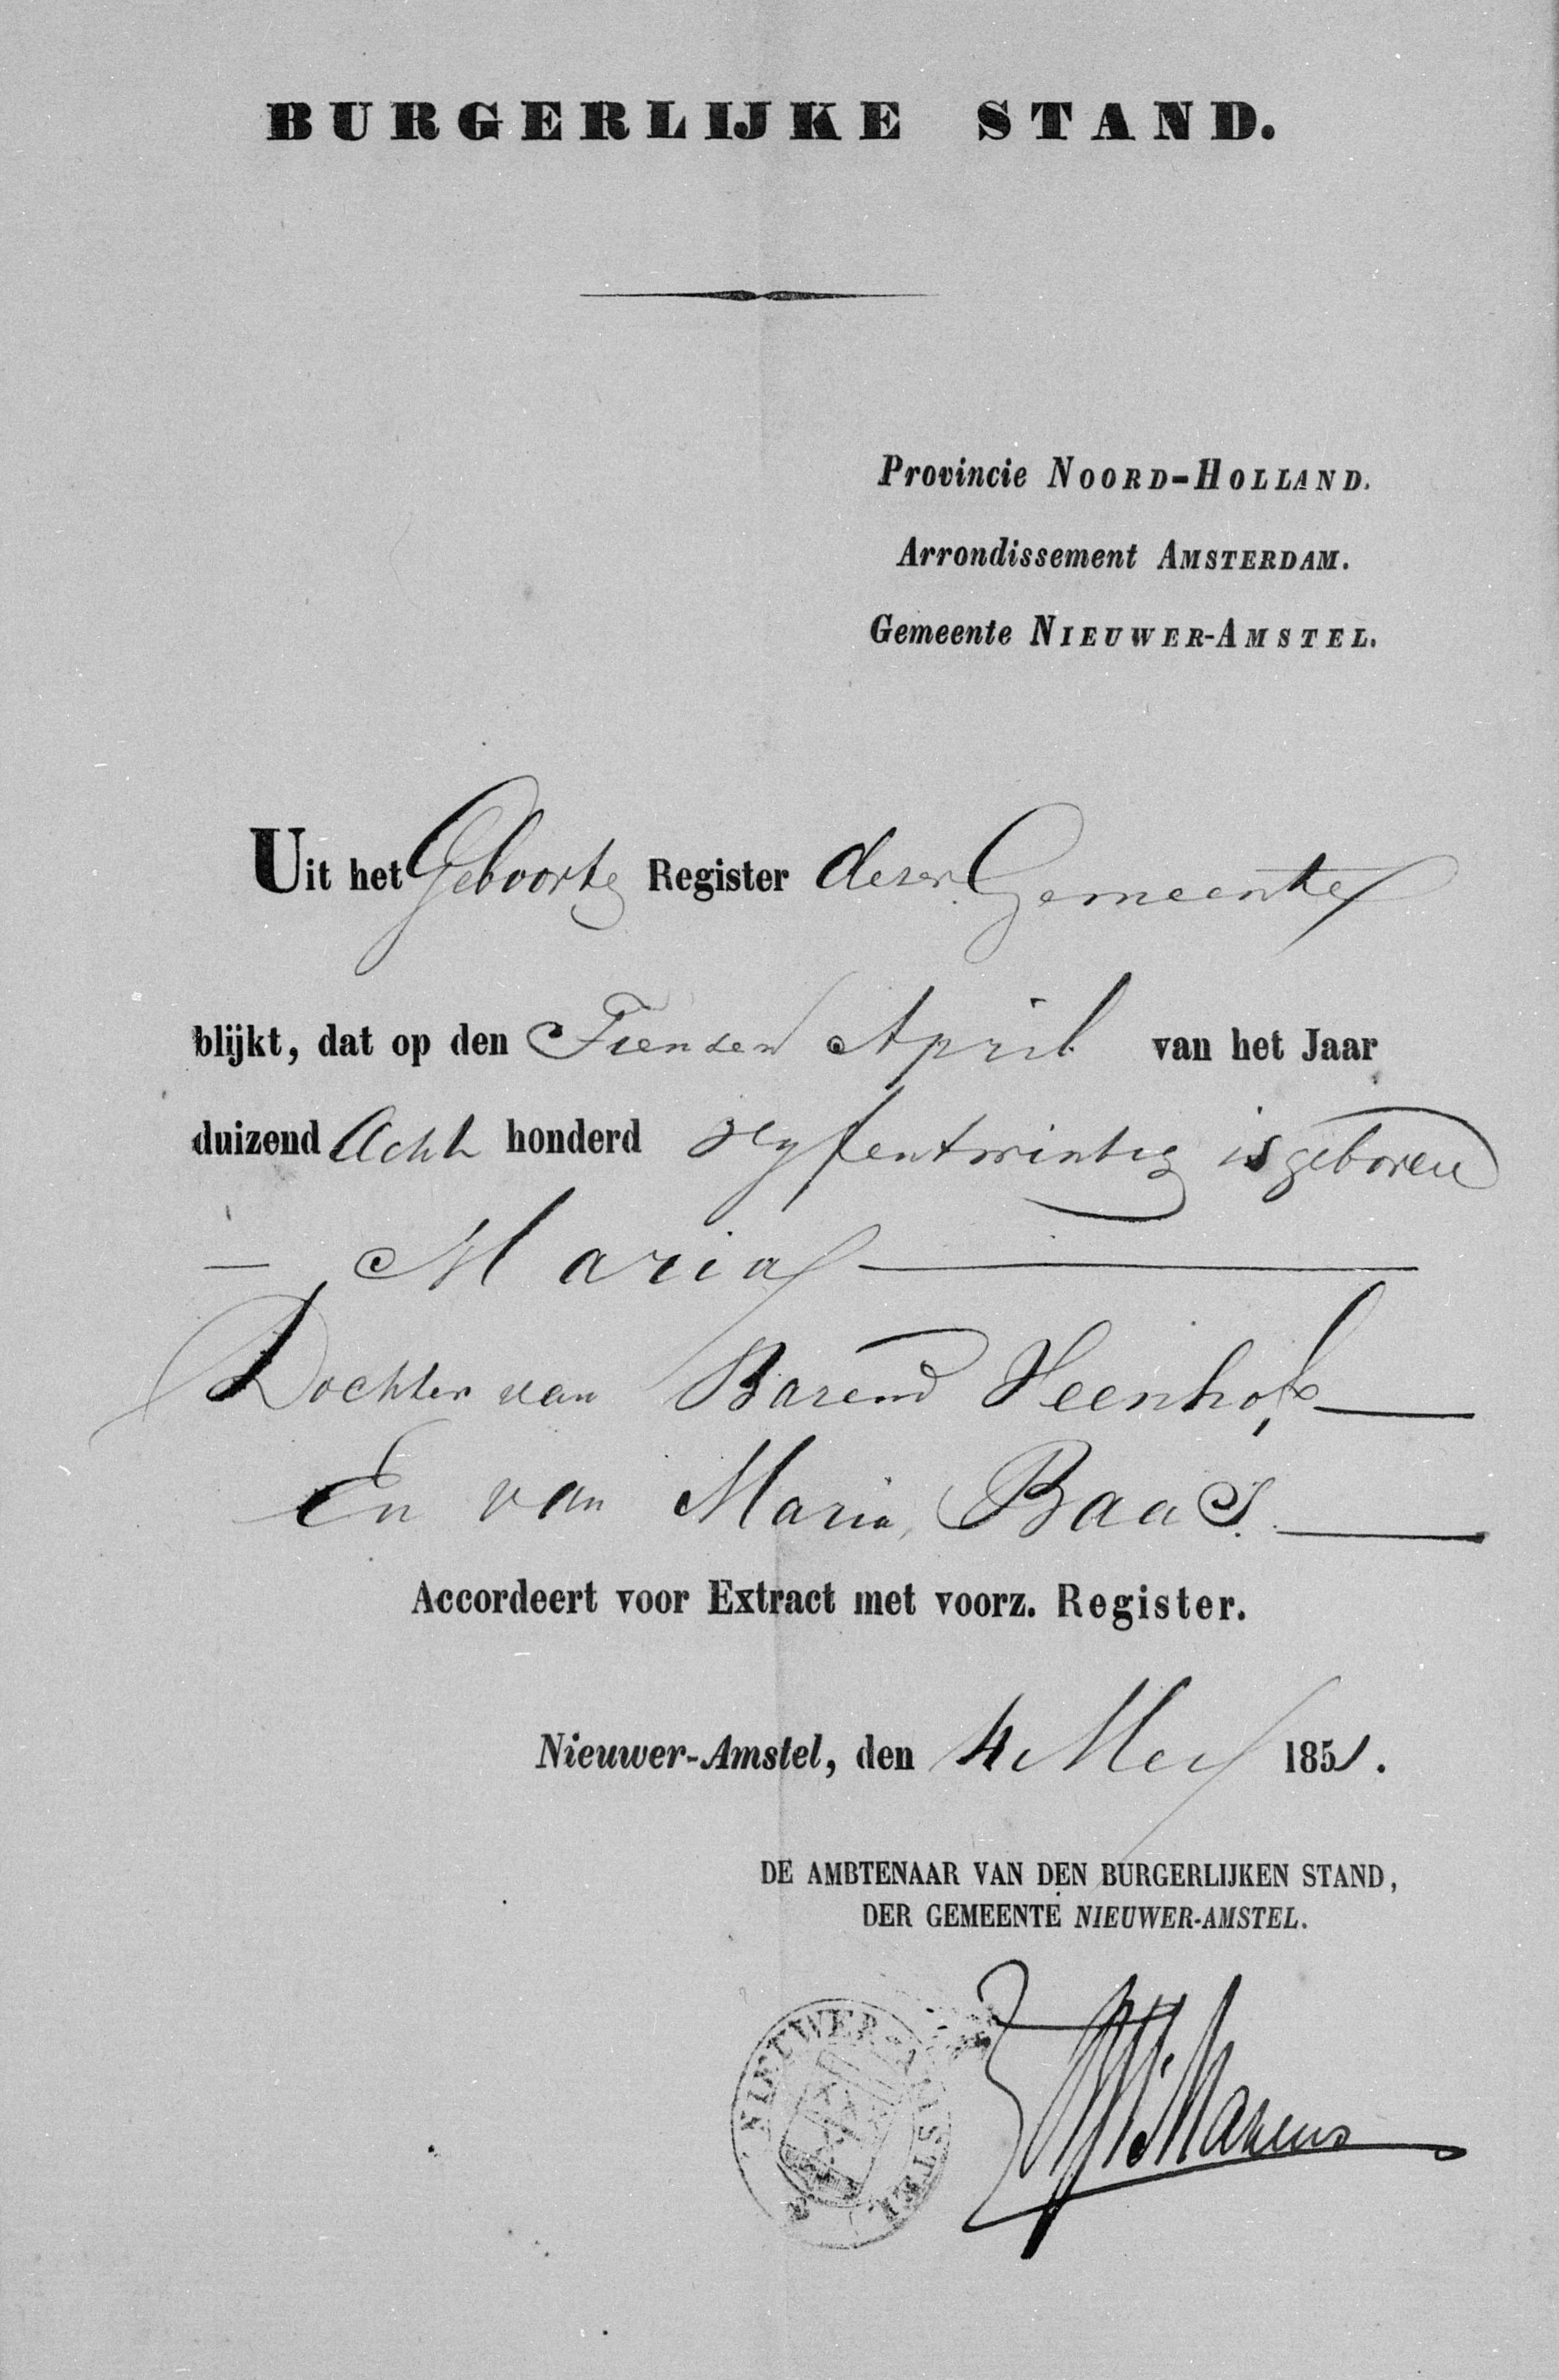 BURGERLIJKE STAND.
Provincie NOORD-HOLLAND.
Arrondissement AMSTERDAM.
Gemeente NIEUWER-AMSTEL.
Uit het Geboorte Register dezer Gemeente
blijkt, dat op den Tienden April van het Jaar
duizend Acht honderd zeyfentwintig is geboren
— Maria —
Dochter van Barend Heenhof —
En van Maria Baas. —
Accordeert voor Extract met voorz. Register.
Nieuwer-Amstel, den 4 Mey 1851.
DE AMBTENAAR VAN DEN BURGERLIJKEN STAND,
DER GEMEENTE NIEUWER-AMSTEL.
NIEUWER-AMSTEL